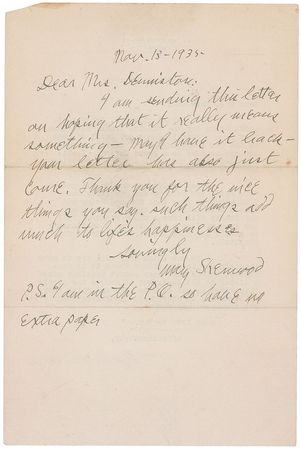 Nov. 18 - 1935-
Dear Mrs. Denniston:
I am sending this letter
on hoping that it really means
something - may I have it back -
your letter has also just
come. Thank you for the nice
things you say. such things add
much to life's happinesses
Lovingly
Sherwood
P.S. I am in the P.O. so have no
extra paper